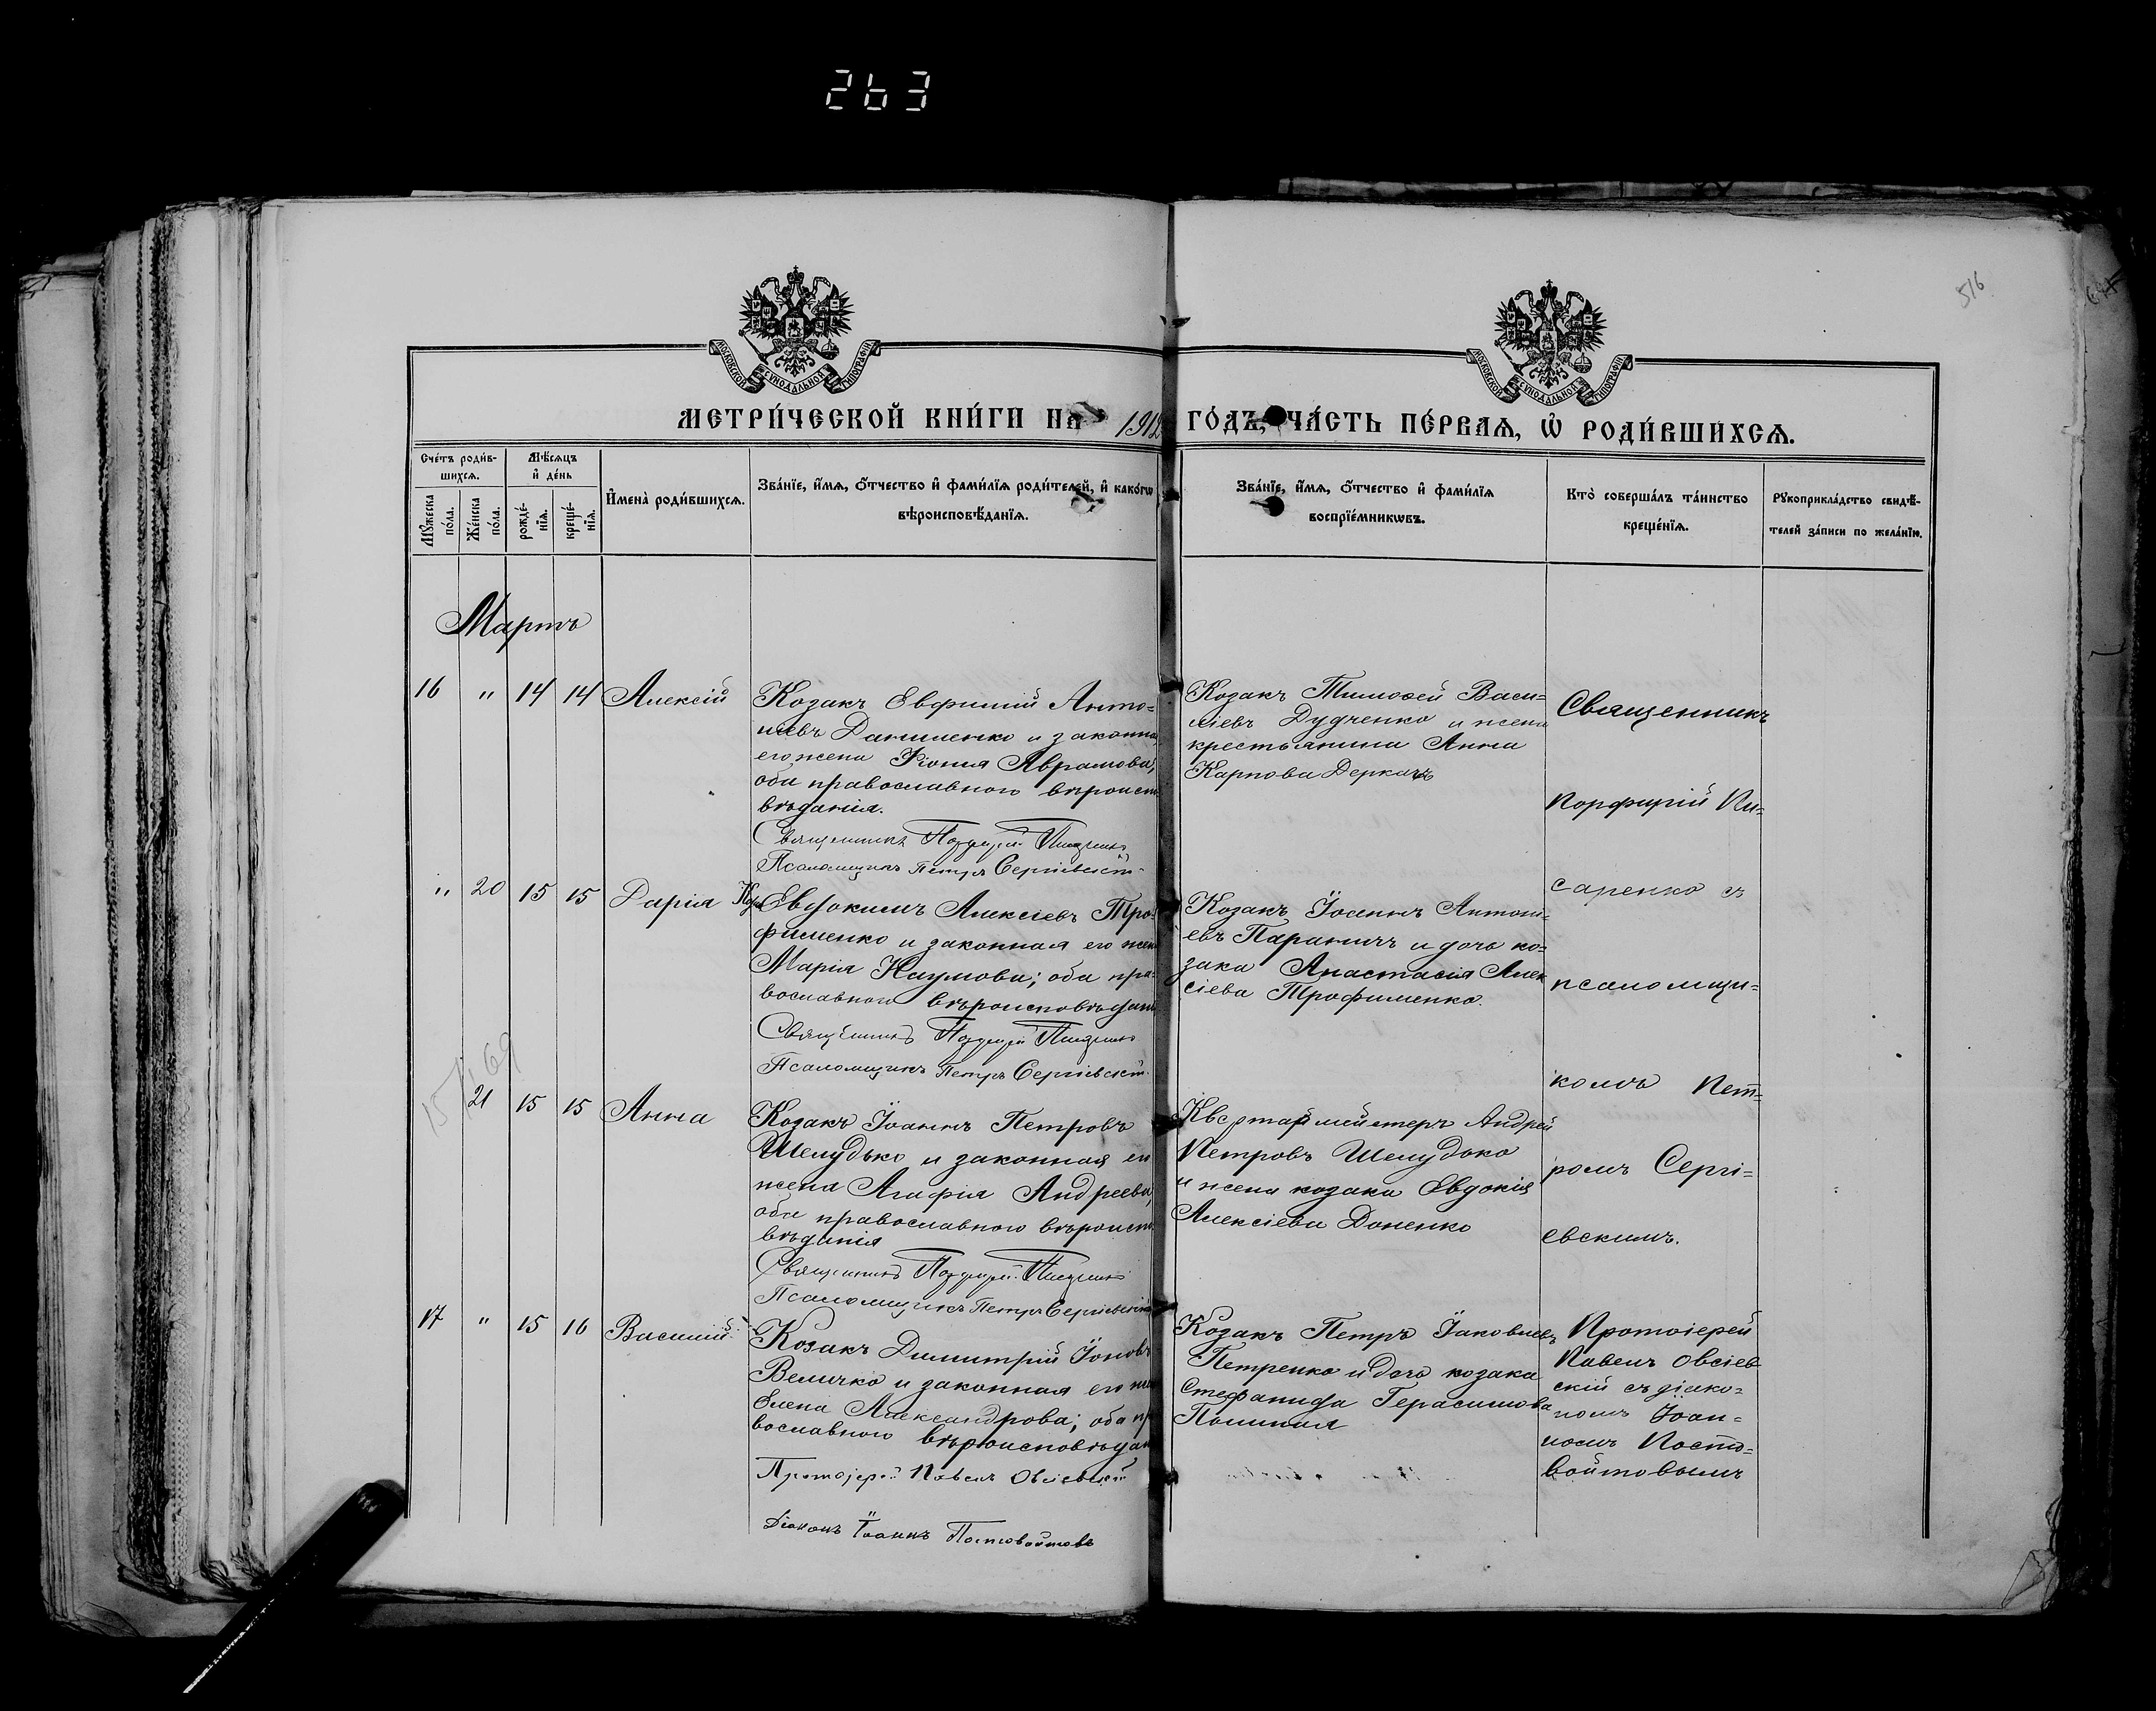 263
516
МОСКОВСКОЙ СѴНОДАЛЬНОЙ ТИПОГРАФІИ
МОСКОВСКОЙ СѴНОДАЛЬНОЙ ТИПОГРАФІИ
МЕТРИ́ЧЕСКОЙ КНИ́ГИ НА 1912 ГО́ДЪ, ЧА́СТЬ ПЕ́РВАЯ, Ѡ҆ РОДИ́ВШИХСЯ.
Сче́тъ роди́в-
шихся.
Мѣ́сяцъ
и҆ де́нь
Му́жеска
по́ла.
Же́нска
по́ла.
рожде́-
нїя.
креще́-
нїя.
И҆мена̀ роди́вшихся.
Зва́нїе, и҆́мя, ѻ҆́тчество и҆ фами́лїя роди́телей, и҆ како́гѡ
вѣроисповѣ́данїя.
Зва́нїе, и҆́мя, ѻ҆́тчество и҆ фами́лїя
воспрїе́мникѡвъ.
Кто̀ соверша́лъ та́инство
креще́нїя.
Рукоприкла́дство свидѣ́-
телей за́писи по жела́нїю.
Мартъ
16 " 14 14 Алексій
Козакъ Евфимій Анто-
ніевъ Даниленко и законна
его жена Фіонія Аврамова;
оба православнаго вѣроиспо
вѣданія.
Священникъ Порфирій Писаренко
Псаломщикъ Петръ Сергіевскій
Козакъ Тимоѳей Васи-
ліевъ Дудченко и жена
крестьянина Анна
Карпова Деркачъ
Священникъ
Порфирій Пи-
саренко съ
псаломщи-
комъ Пет-
ромъ Сергі-
евскимъ.
" 20 15 15 Дарія
Коз. Евдокимъ Алексіевъ Тро-
фименко и законная его жен
Марія Наумова; оба пра-
вославнаго вѣроисповѣдан
Священникъ Порфирій Писаренко
Псаломщикъ Петръ Сергіевскій
Козакъ Іосифъ Антоні-
евъ Параничъ и дочь ко-
зака Анастасія Алек
сіева Трофименко.
21 15 15 Анна
Козакъ Іоаннъ Петровъ
Шелудько и законная его
жена Агафія Андреева,
оба православнаго вѣроиспо
вѣданія
Священникъ Порфирій Писаренко
Псаломщикъ Петръ Сергіевскій
Квартирмейстеръ Андрей
Петровъ Шелудько
и жена козака Евдокія
Алексіева Доненко
17 " 15 16 Василій
Козакъ Димитрій Іоновъ
Величко и законная его жен
Елена Александрова; оба пр
вославнаго вѣроисповѣдан
Протоіерей Павелъ Овсіевскій
Діаконъ Іоаннъ Постовойтовъ
Козакъ Петръ Іаковлевъ
Петренко и дочь козака
Стефанида Герасимова
Протоіерей
Павелъ Овсіев
скій съ діако-
номъ Іоан-
номъ Посто-
войтовымъ